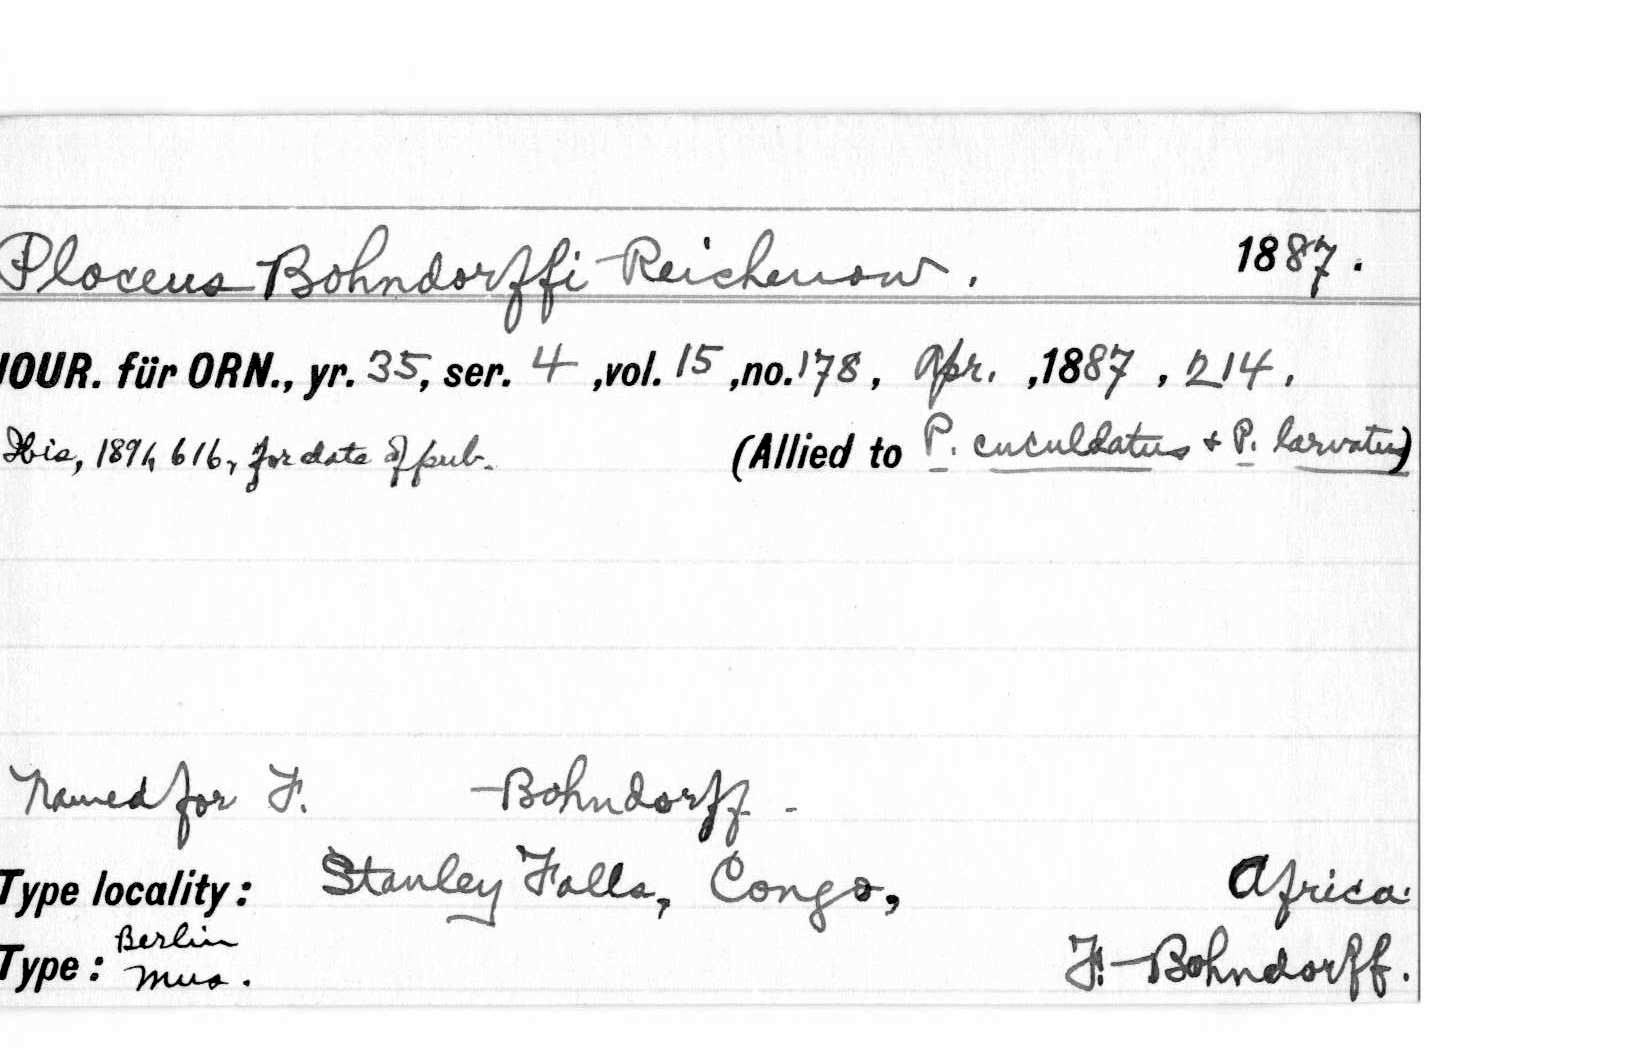 Ploceus Bohndorffi Reichenow. 1887.
JOUR. für ORN., yr. 35, ser. 4, vol. 15, no. 178, Apr., 1887, 214.
Ibis, 1891, 616, for date of pub. (Allied to P. cuculdatus + P. larvatus)
Named for F. Bohndorff.
Type locality: Stanley Falls, Congo, Africa.
Type: Berlin Mus. F. Bohndorff.